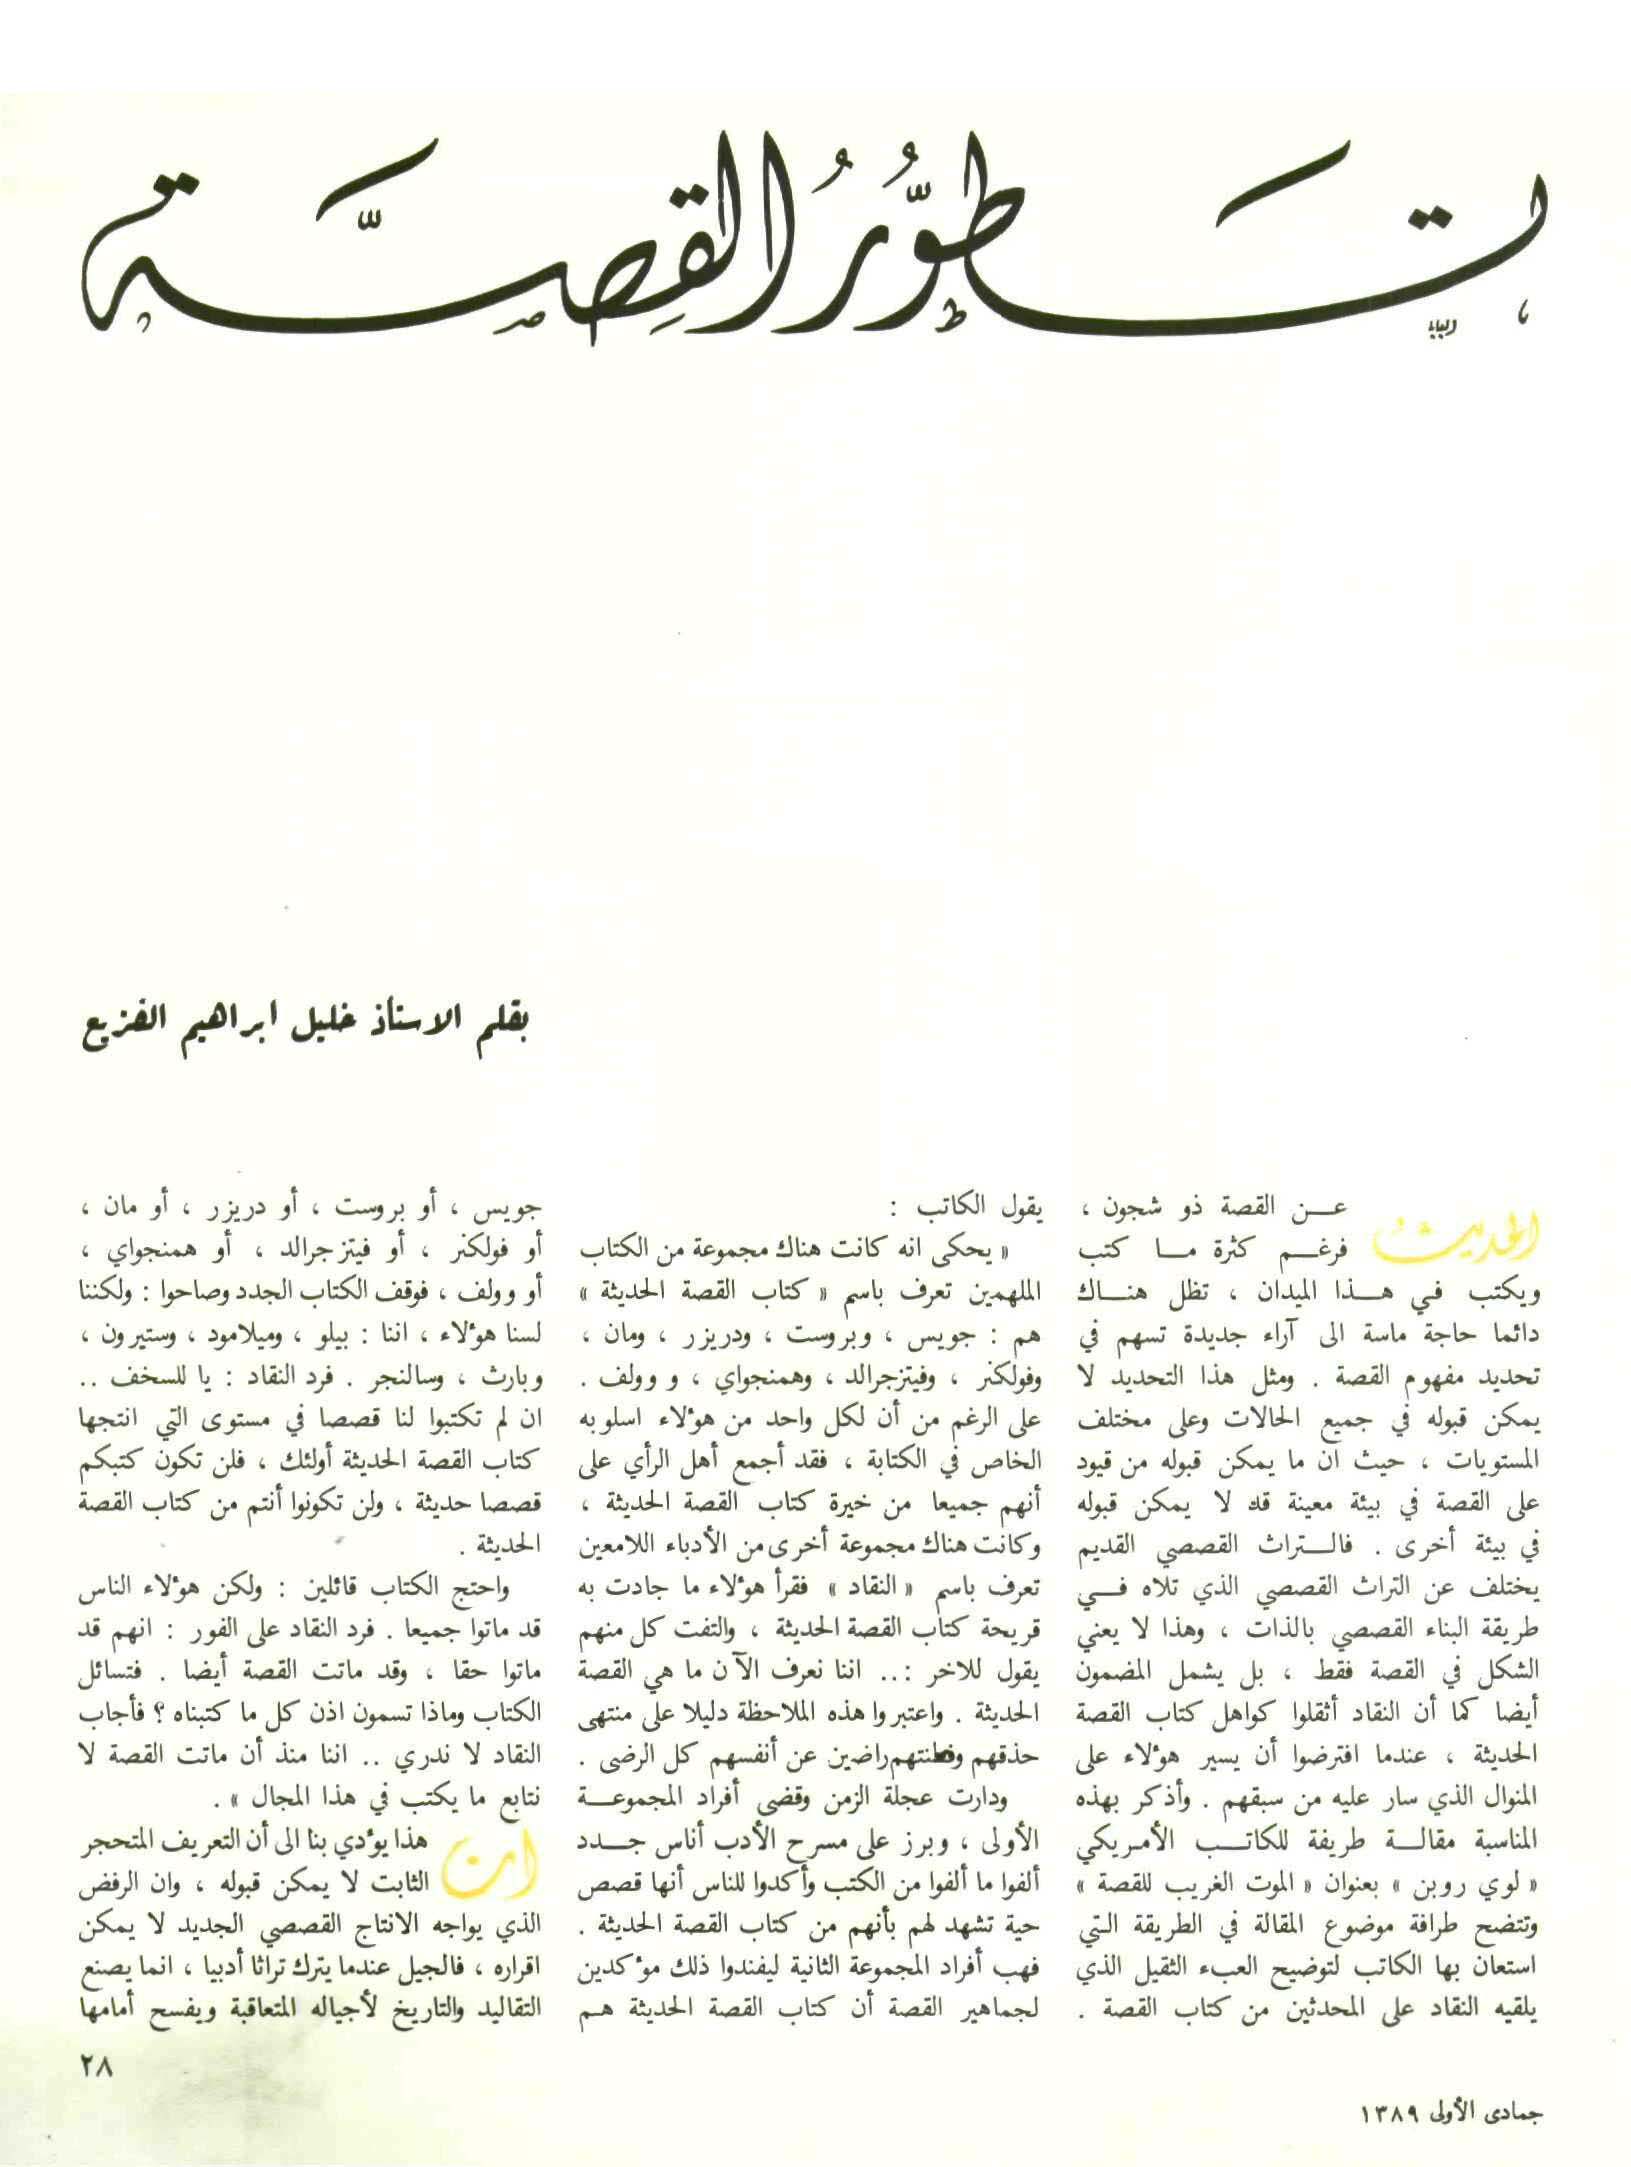 تطور القصة
بقلم الاستاذ خليل ابراهيم الفزيع
الحديث عن القصة ذو شجون ،
فرغم كثرة ما كتب
ويكتب في هذا الميدان ، تظل هناك
دائما حاجة ماسة الى آراء جديدة تسهم في
تحديد مفهوم القصة . ومثل هذا التحديد لا
يمكن قبوله في جميع الحالات وعلى مختلف
المستويات ، حيث ان ما يمكن قبوله من قيود
على القصة في بيئة معينة قد لا يمكن قبوله
في بيئة أخرى . فالتراث القصصي القديم
يختلف عن التراث القصصي الذي تلاه في
طريقة البناء القصصي بالذات ، وهذا لا يعني
الشكل في القصة فقط ، بل يشمل المضمون
أيضا كما أن النقاد أثقلوا كواهل كتاب القصة
الحديثة ، عندما افترضوا أن يسير هؤلاء على
المنوال الذي سار عليه من سبقهم . وأذكر بهذه
المناسبة مقالة طريفة للكاتب الأمريكي
« لوي روبن » بعنوان « الموت الغريب للقصة »
وتتضح طرافة موضوع المقالة في الطريقة التي
استعان بها الكاتب لتوضيح العبء الثقيل الذي
يلقيه النقاد على المحدثين من كتاب القصة .
يقول الكاتب :
« يحكى انه كانت هناك مجموعة من الكتاب
الملهمين تعرف باسم « كتاب القصة الحديثة »
هم : جويس ، وبروست ، ودريزر ، ومان ،
وفولكنر ، وفيتزجرالد ، وهمنجواي ، و وولف .
على الرغم من أن لكل واحد من هؤلاء اسلوبه
الخاص في الكتابة ، فقد أجمع أهل الرأي على
أنهم جميعا من خيرة كتاب القصة الحديثة ،
وكانت هناك مجموعة أخرى من الأدباء اللامعين
تعرف باسم « النقاد » فقرأ هؤلاء ما جادت به
قريحة كتاب القصة الحديثة ، والتفت كل منهم
يقول للاخر :.. اننا نعرف الآن ما هي القصة
الحديثة . واعتبروا هذه الملاحظة دليلا على منتهى
حذقهم وفطنتهم راضين عن أنفسهم كل الرضى .
ودارت عجلة الزمن وقضى أفراد المجموعة
الأولى ، وبرز على مسرح الأدب أناس جدد
ألفوا ما ألفوا من الكتب وأكدوا للناس أنها قصص
حية تشهد لهم بأنهم من كتاب القصة الحديثة .
فهب أفراد المجموعة الثانية ليفندوا ذلك مؤكدين
لجماهير القصة أن كتاب القصة الحديثة هم
جويس ، أو بروست ، أو دريزر ، أو مان ،
أو فولكنر ، أو فيتزجرالد ، أو همنجواي ،
أو وولف ، فوقف الكتاب الجدد وصاحوا : ولكننا
لسنا هؤلاء ، اننا : بيلو ، وميلامود ، وستيرون ،
وبارث ، وسالنجر . فرد النقاد : يا للسخف ..
ان لم تكتبوا لنا قصصا في مستوى التي انتجها
كتاب القصة الحديثة أولئك ، فلن تكون كتبكم
قصصا حديثة ، ولن تكونوا أنتم من كتاب القصة
الحديثة .
واحتج الكتاب قائلين : ولكن هؤلاء الناس
قد ماتوا جميعا . فرد النقاد على الفور : انهم قد
ماتوا حقا ، وقد ماتت القصة أيضا . فتسائل
الكتاب وماذا تسمون اذن كل ما كتبناه ؟ فأجاب
النقاد لا ندري .. اننا منذ أن ماتت القصة لا
نتابع ما يكتب في هذا المجال » .
ان هذا يؤدي بنا الى أن التعريف المتحجر
الثابت لا يمكن قبوله ، وان الرفض
الذي يواجه الانتاج القصصي الجديد لا يمكن
اقراره ، فالجيل عندما يترك تراثا أدبيا ، انما يصنع
التقاليد والتاريخ لأجياله المتعاقبة ويفسح أمامها
٢٨
جمادى الأولى ١٣٨٩